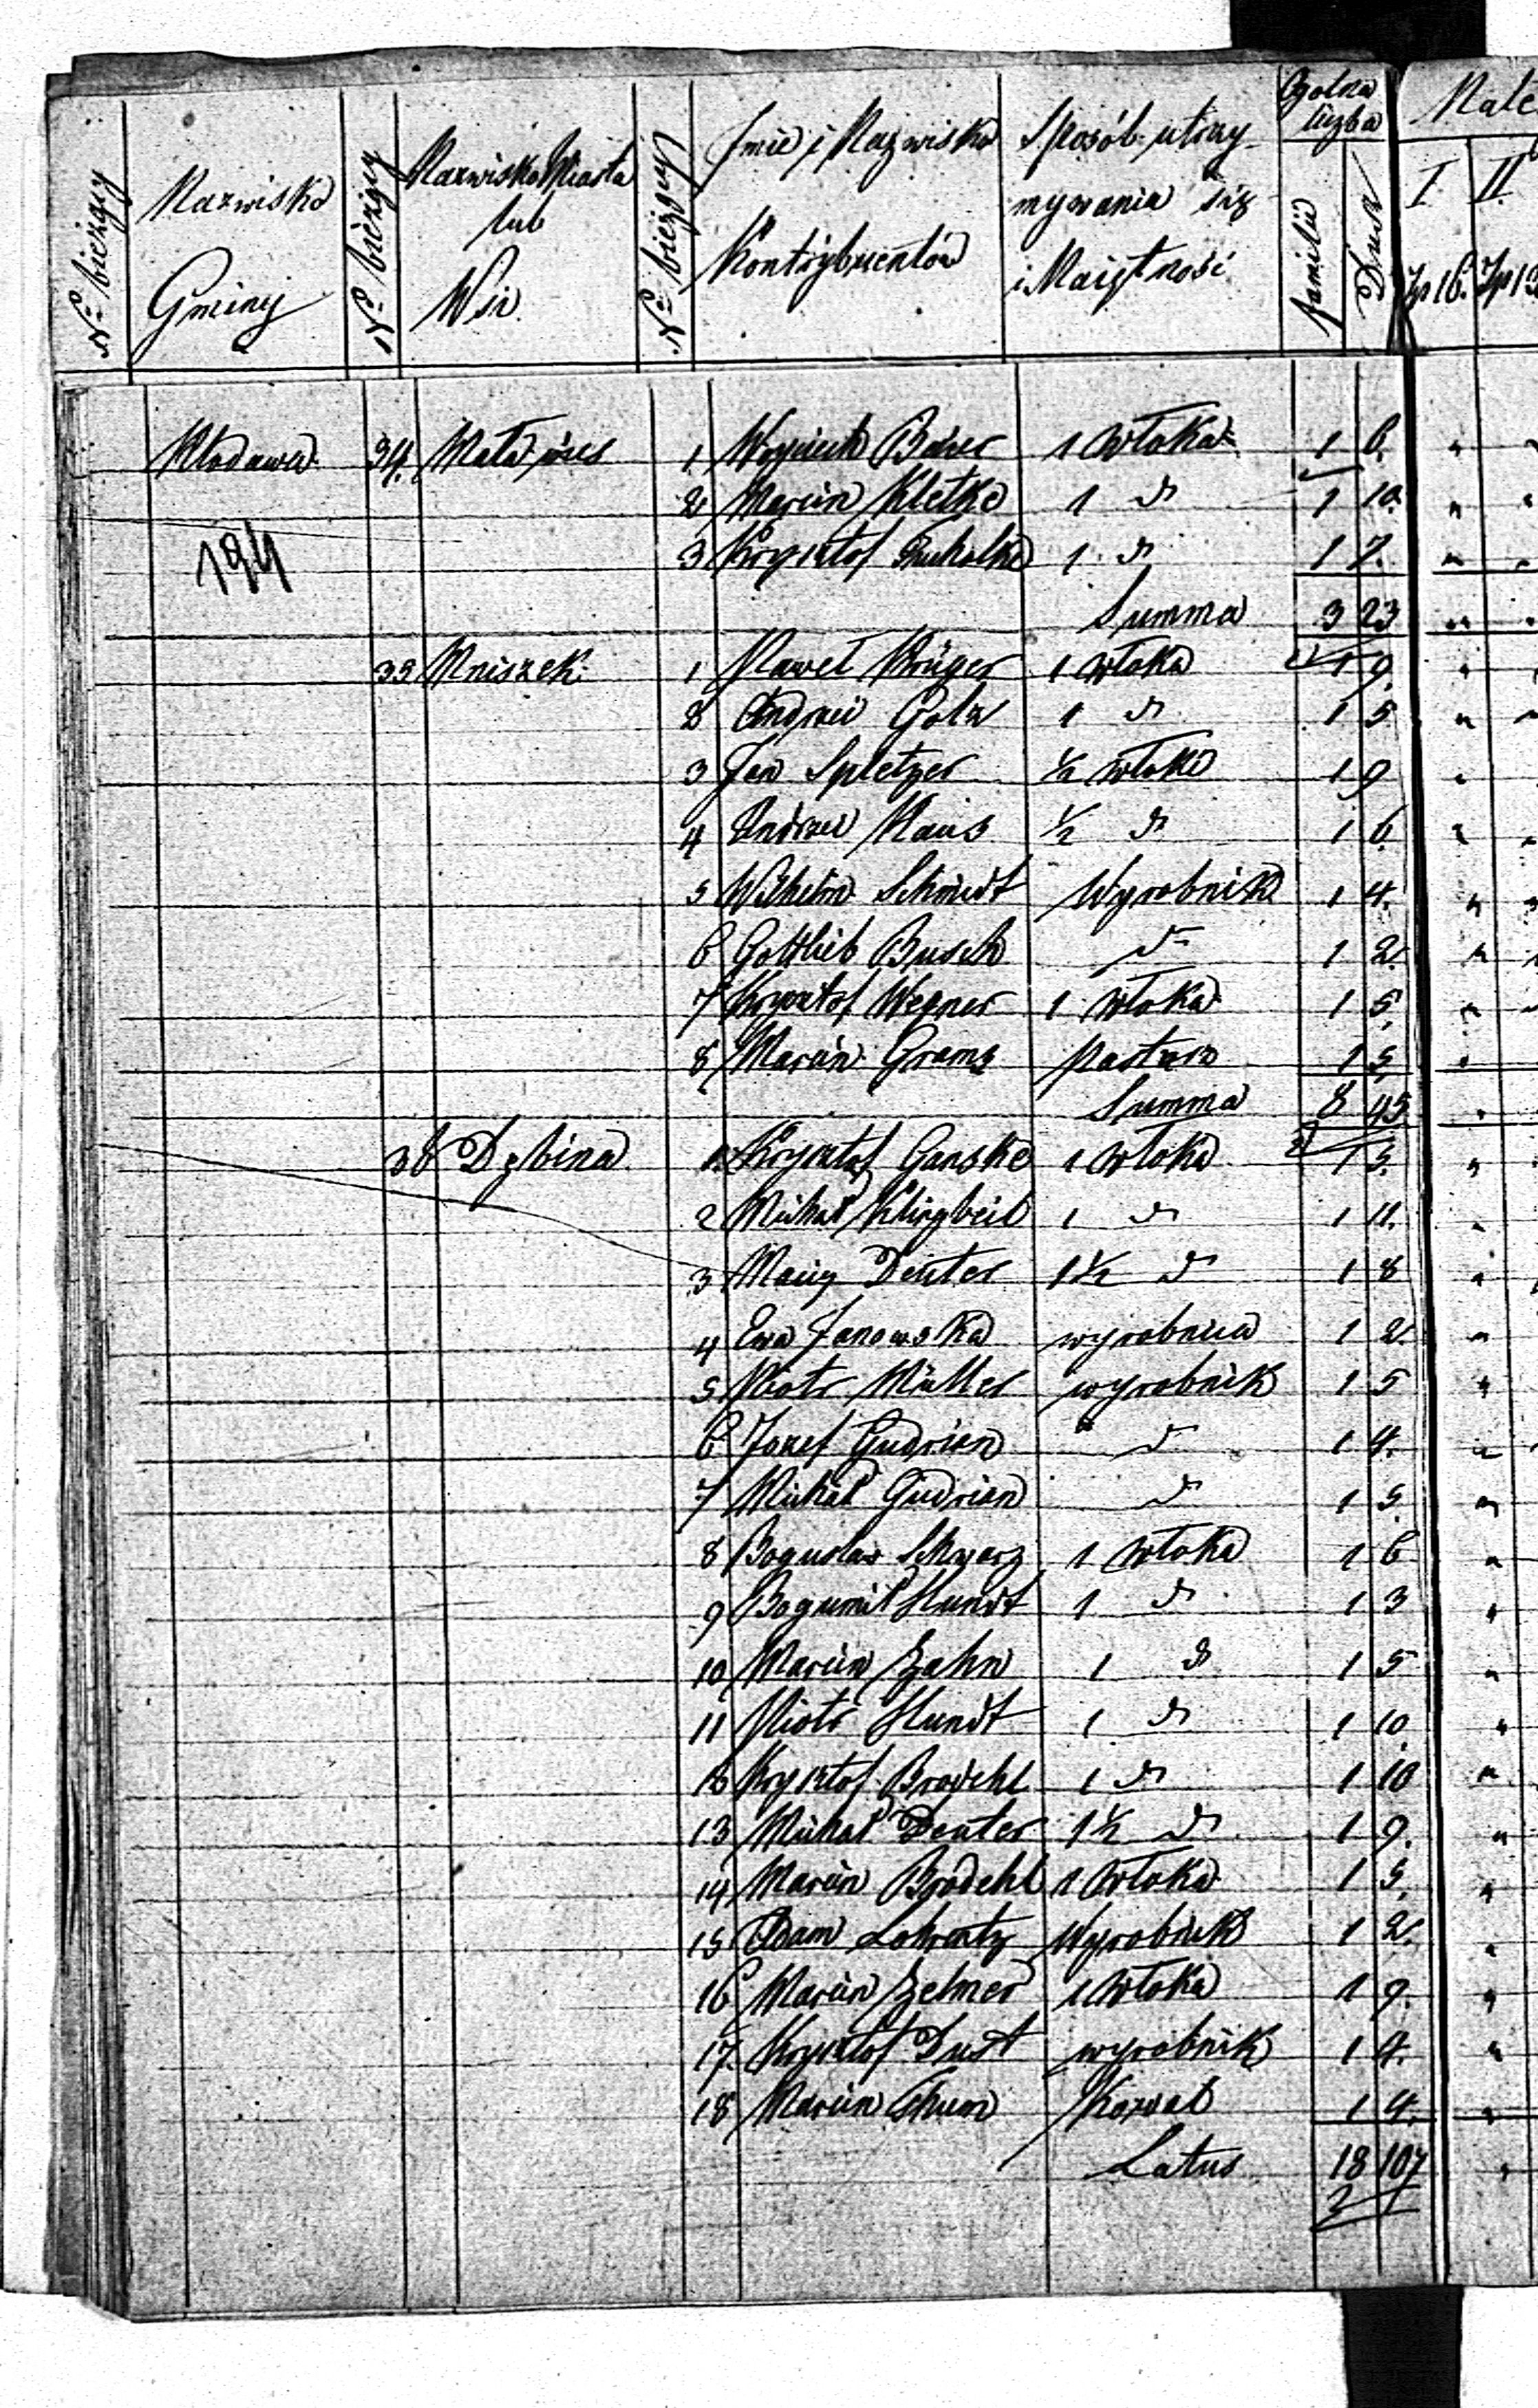 No bieżący | Nazwisko Gminy | No bieżący | Nazwisko Miasta lub Wsi | No bieżący | Imie i Nazwisko Kontrybuentów | Sposób utrzymywania się i Maiętność | Ogólna liczba | familii | Dusz | I. | II.
Kłodawa | 34 | Mała wies | 1 | Woyciech Bärer | 1 włoka | 1 | 6.
2 | Marcin Kletke | 1 d | 1 | 10.
194 | 3 | Krysztof | 1 d | 1 | 7.
Summa | 3 | 23
35 | Mniszek | 1 | Paweł Krüger | 1 włoka | 1 | 9.
2 | Andrzei Golz | 1 d | 1 | 5
3 | Jan Spletzer | ½ włoki | 1 | 9
4 | Andrzei | ½ d | 1 | 6
5 | Wilhelm Schmidt | Wyrobnik | 1 | 4.
6 | Gottlieb Busch | d | 1 | 2.
7 | Krysztof Wegner | 1 włoka | 1 | 5
8 | Marcin Grams | Pasterz | 1 | 5
Summa | 8 | 45
36 | Dębina | 1 | Krysztof Ganske | 1 włoka | 1 | 5.
2 | Michał Klingbeil | 1 d | 1 | 11.
3 | Maciey Deuter | 1½ d | 1 | 8
4 | Ewa Janowska | wyrobnica | 1 | 2.
5 | Piotr Müller | wyrobnik | 1 | 5
6 | Jozef Gudrian | d | 1 | 4.
7 | Michał Gudrian | d | 1 | 5.
8 | Bogusław Schwarz | 1 włoka | 1 | 6
9 | Bogumił Hundt | 1 d | 1 | 3
10 | Marcin Zahn | 1 d | 1 | 5
11 | Piotr Hundt | 1 d | 1 | 10
12 | Krysztof Brodehl | 1 d | 1 | 10
13 | Michał Deuter | 1½ d | 1 | 9.
14 | Marcin Brodehl | 1 włoka | 1 | 5.
15 | Adam | Wyrobnik | 1 | 2.
16 | Marcin Zelmer | 1 włoka | 1 | 9.
17. | Krysztof Dust | wyrobnik | 1 | 4.
18 | Marcin Thum | Kowal | 1 | 4.
Latus | 18 | 107